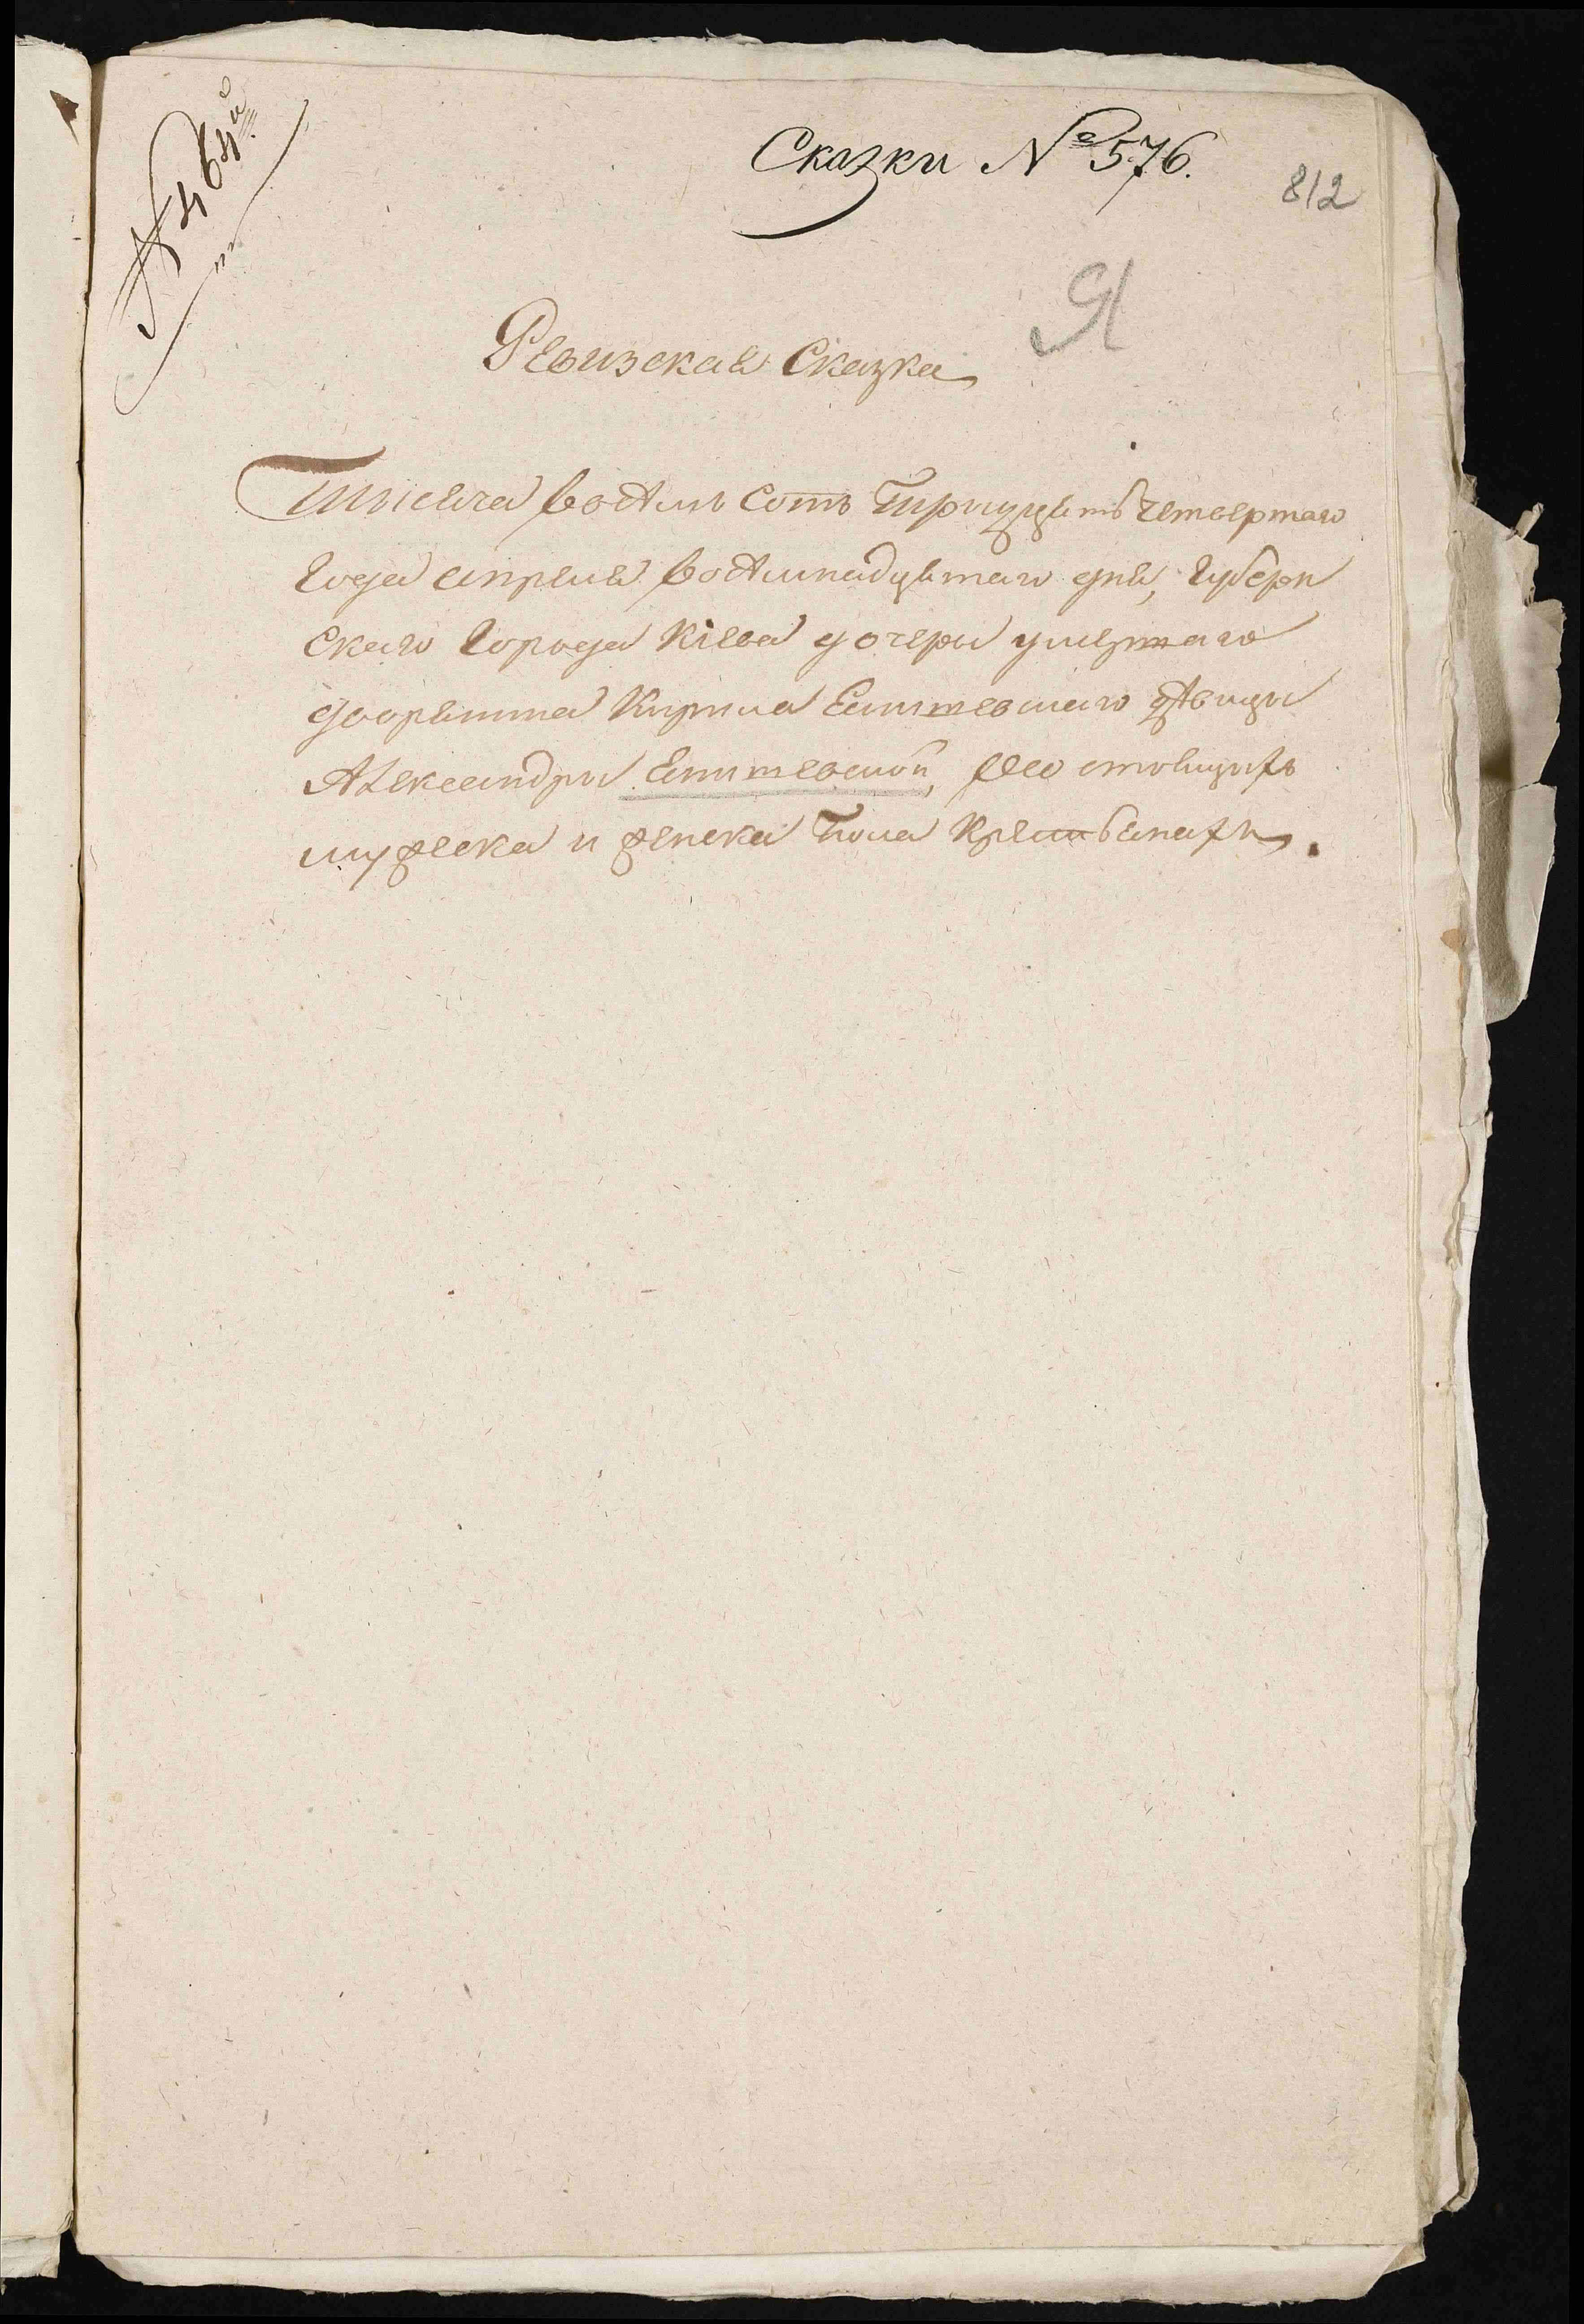 № 464й
Сказки № 576.
812
Я
Ревизская Сказка
Тысяча восѣмь сотъ тридцять четвертаго
года апреля восѣмнадцятаго дня, губерн
скаго города Кіева дочери умершаго
дворянина Кирила девицы
Александры о состоящихъ
мужеска и женска пола крестьянахъ.